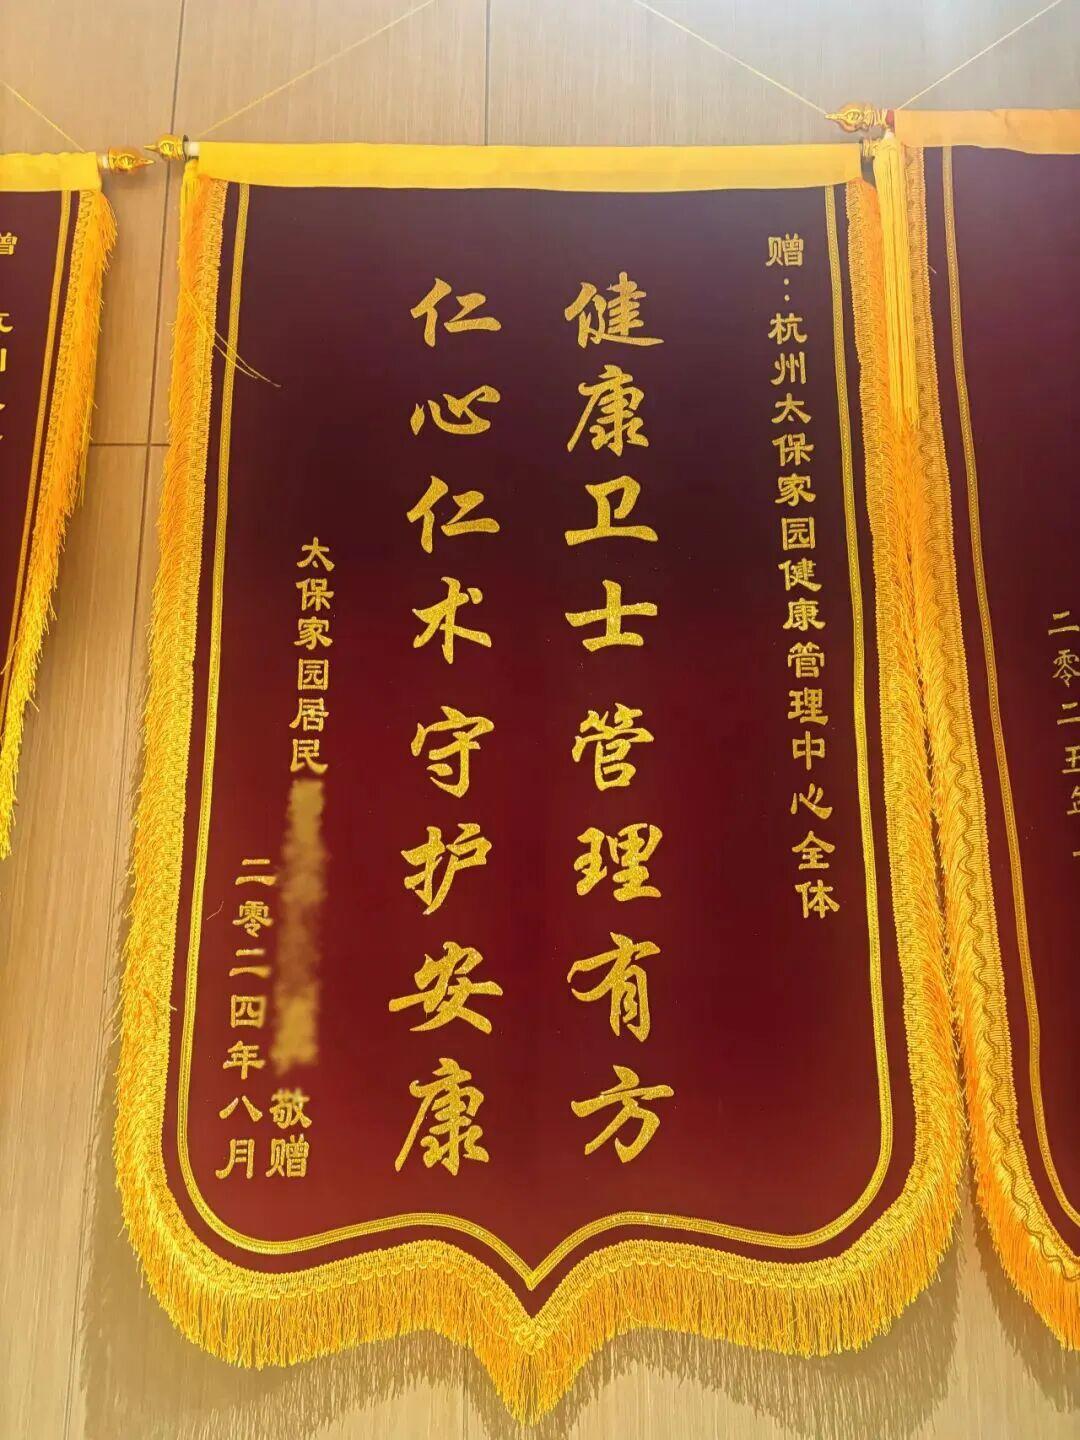 赠：杭州太保家园健康管理中心全体
健康卫士管理有方
仁心仁术守护安康
太保家园居民
敬赠
二零二四年八月
二零二五年
赠